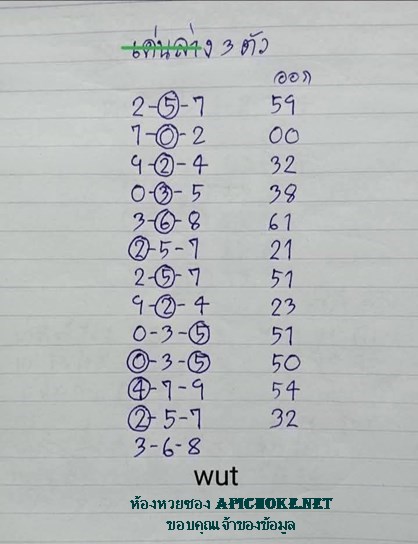 เด่นล่าง 3 ตัว
ออก
2-5-7 59
7-0-2 00
9-2-4 32
0-3-5 38
3-6-8 61
2-5-7 21
2-5-7 51
9-2-4 23
0-3-5 51
0-3-5 50
4-7-9 54
2-5-7 32
3-6-8
wut
ห้องหวยซอง APICHOKE.NET
ขอบคุณเจ้าของข้อมูล